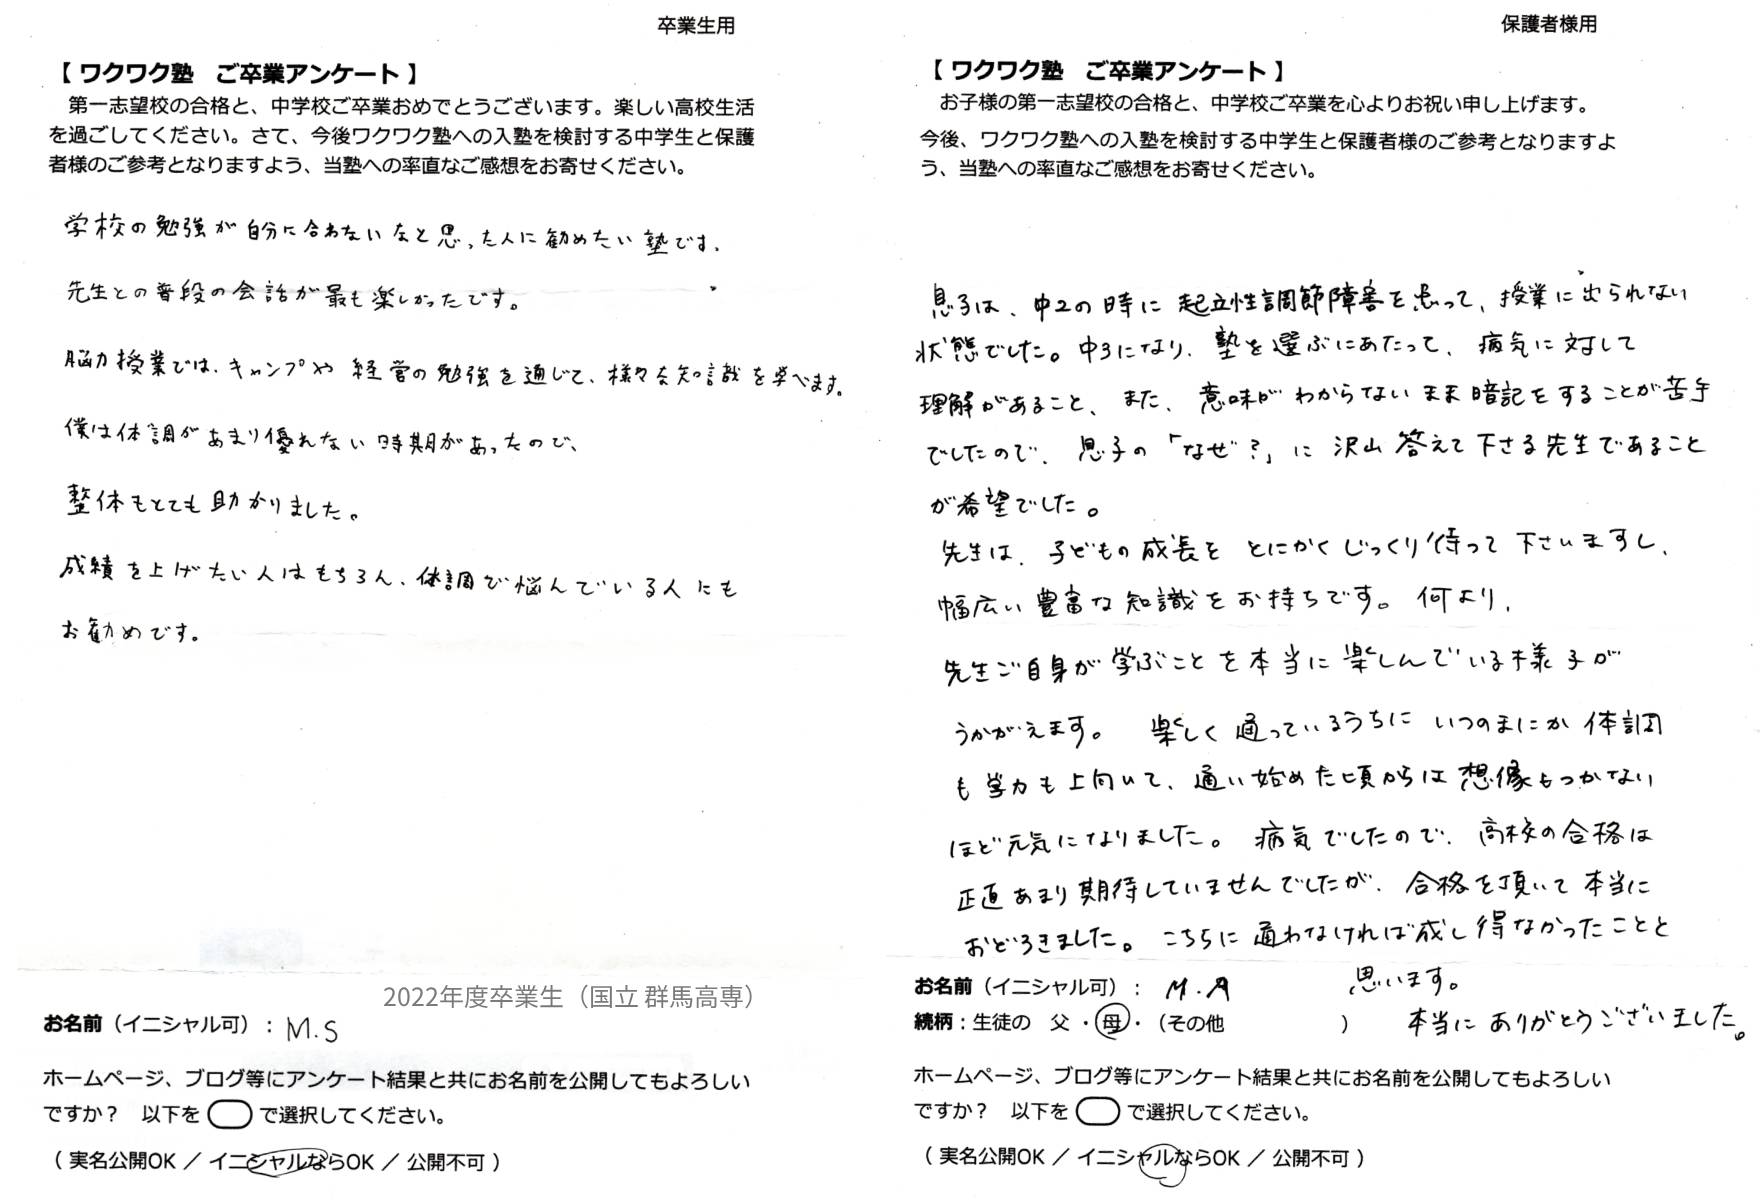 卒業生用
【 ワクワク塾　ご卒業アンケート 】
第一志望校の合格と、中学校ご卒業おめでとうございます。楽しい高校生活
を過ごしてください。さて、今後ワクワク塾への入塾を検討する中学生と保護
者様のご参考となりますよう、当塾への率直なご感想をお寄せください。
学校の勉強が自分に合わないなと思った人に勧めたい塾です。
先生との普段の会話が最も楽しかったです。
脳力授業では、キャンプや経営の勉強を通じて、様々な知識を学べます。
僕は体調があまり優れない時期があったので、
整体もとても助かりました。
成績を上げたい人はもちろん、体調で悩んでいる人にも
お勧めです。
2022年度卒業生（国立 群馬高専）
お名前（イニシャル可）： M.S
ホームページ、ブログ等にアンケート結果と共にお名前を公開してもよろしい
ですか？　以下を　　で選択してください。
（ 実名公開OK ／ イニシャルならOK ／ 公開不可 ）
保護者様用
【 ワクワク塾　ご卒業アンケート 】
お子様の第一志望校の合格と、中学校ご卒業を心よりお祝い申し上げます。
今後、ワクワク塾への入塾を検討する中学生と保護者様のご参考となりますよ
う、当塾への率直なご感想をお寄せください。
息子は、中2の時に起立性調節障害を患って、授業に出られない
状態でした。中3になり、塾を選ぶにあたって、病気に対して
理解があること、また、意味がわからないまま暗記をすることが苦手
でしたので、息子の「なぜ？」に沢山答えて下さる先生であること
が希望でした。
先生は、子どもの成長をとにかくじっくり待って下さいますし、
幅広い豊富な知識をお持ちです。何より、
先生ご自身が学ぶことを本当に楽しんでいる様子が
うかがえます。　楽しく通っているうちにいつのまにか体調
も学力も上向いて、通い始めた頃からは想像もつかない
ほど元気になりました。病気でしたので、高校の合格は
正直あまり期待していませんでしたが、合格を頂いて本当に
おどろきました。こちらに通わなければ成し得なかったことと
思います。
本当にありがとうございました。
お名前（イニシャル可）： M.A
続柄：生徒の　父 ・ 母 ・（その他　　　　　　）
ホームページ、ブログ等にアンケート結果と共にお名前を公開してもよろしい
ですか？　以下を　　で選択してください。
（ 実名公開OK ／ イニシャルならOK ／ 公開不可 ）